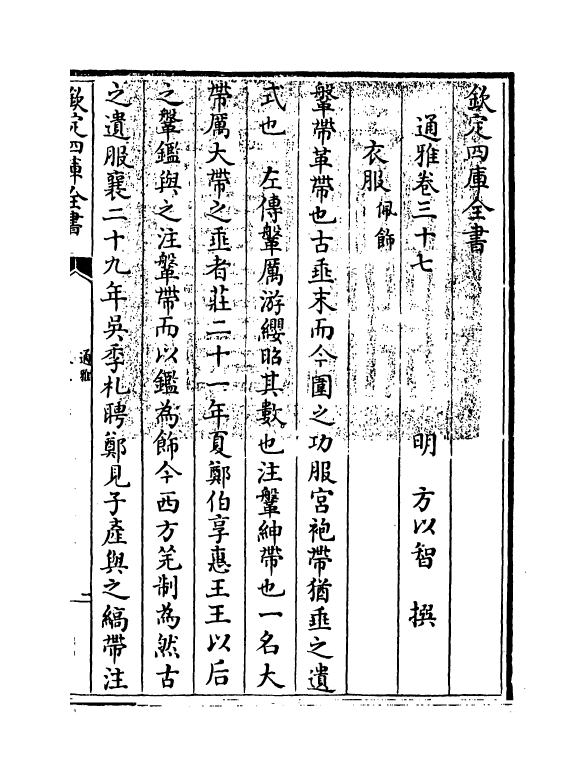 欽定四庫全書
通雅卷三十七
明 方以智 撰
衣服 佩飾
鞶帶革帶也古垂末而今圍之功服宮袍帶猶垂之遺
式也 左傳鞶厲游纓昭其數也注鞶紳帶也一名大
帶厲大帶之垂者莊二十一年夏鄭伯享惠王王以后
之鞶鑑與之注鞶帶而以鑑為飾今西方羌制為然古
之遺服襄二十九年吳季札聘鄭見子產與之縞帶注
欽定四庫全書
通雅